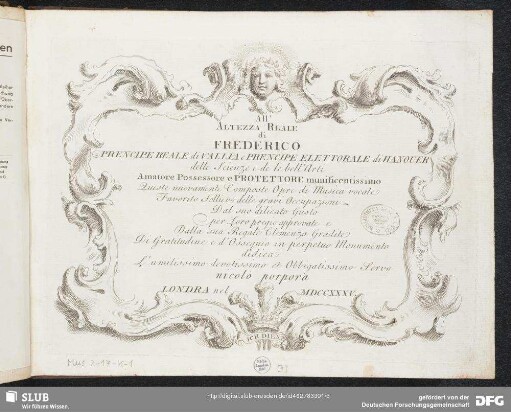 All'
ALTEZZA REALE
di
FREDERICO
PRENCIPE REALE di VALLIA e PRENCIPE ELETTORALE di HANOUER
delle Scienze e de le bell'Arti
Amatore Possessore e PROTETTORE munificentissimo
Queste nuovamente Composte Opre di Musica vocale
Favorito Sollievo delle gravi Occupazione
Dal suo dilicato Gusto
per Loro propie approvate e
Dalla sua Regale Clemenza Gradite
Di Gratitudine e d'Ossequio in perpetuo Monumento
dedica
L'umilissimo devotissimo et Obbligatissimo Servo
nicolo porpora
LONDRA nel MDCCXXXV
ICH DIEN
SLUB
Wir führen Wissen.
gefördert von der
Deutschen Forschungsgemeinschaft
DFG